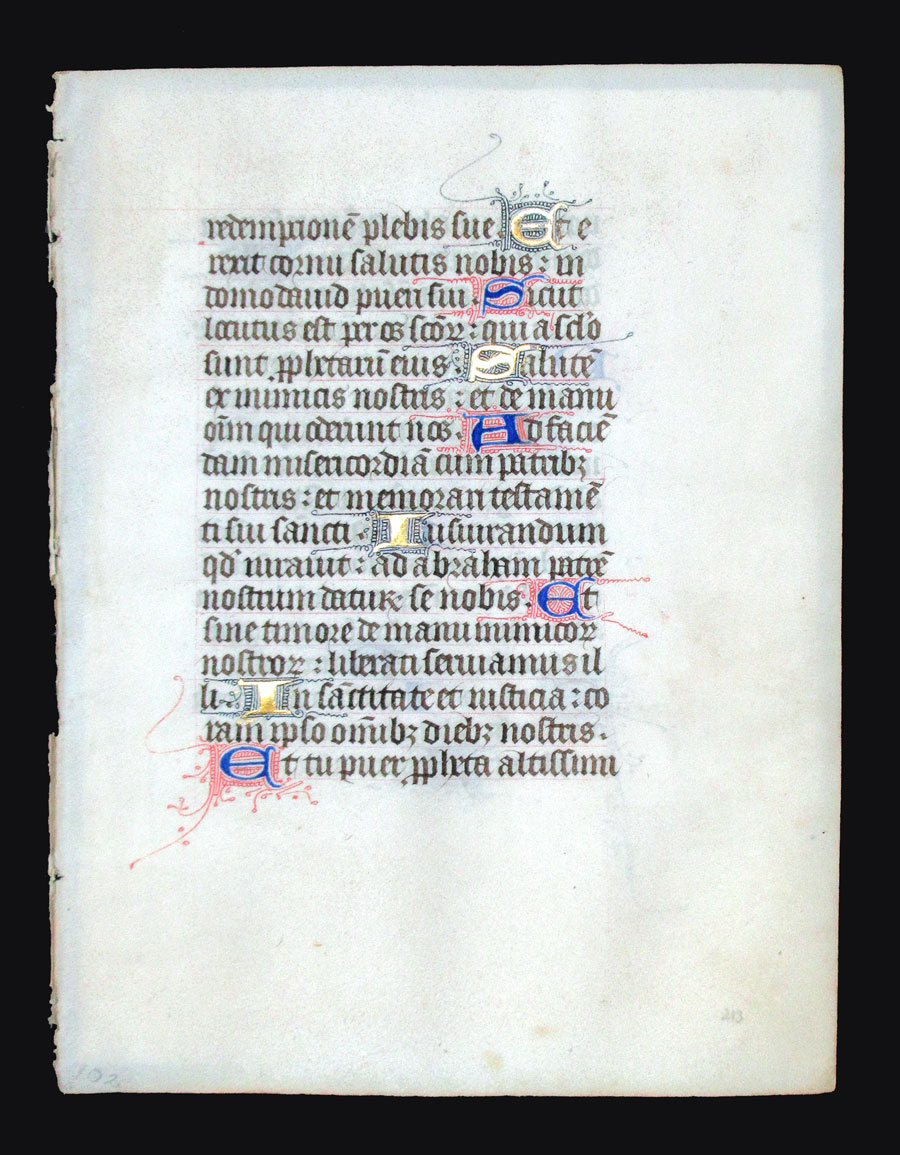 redemptionē plebis sue. Et e
rexit cornu salutis nobis: in
domo dauid pueri sui. Sicut
locutus est per os sc̄oꝝ: qui a sc̄lo
sunt ꝓphetarū eius. Salutē
ex inimicis nostris: et de manu
om̄ qui oderunt nos. Ad faciē
dam misericordiā cum patribꝫ
nostris: et memorari testamē
ti sui sancti. Iusiurandum
qd̓ iurauit: ad abraham patrē
nostrum daturꝝ se nobis. Et
sine timore de manu inimicoꝝ
nostroꝝ: liberati seruiamus il
li. In sāctitate et iusticia: co
ram ipso om̄ibꝫ diebꝫ nostris.
Et tu puer ꝓpheta altissimi
213
102